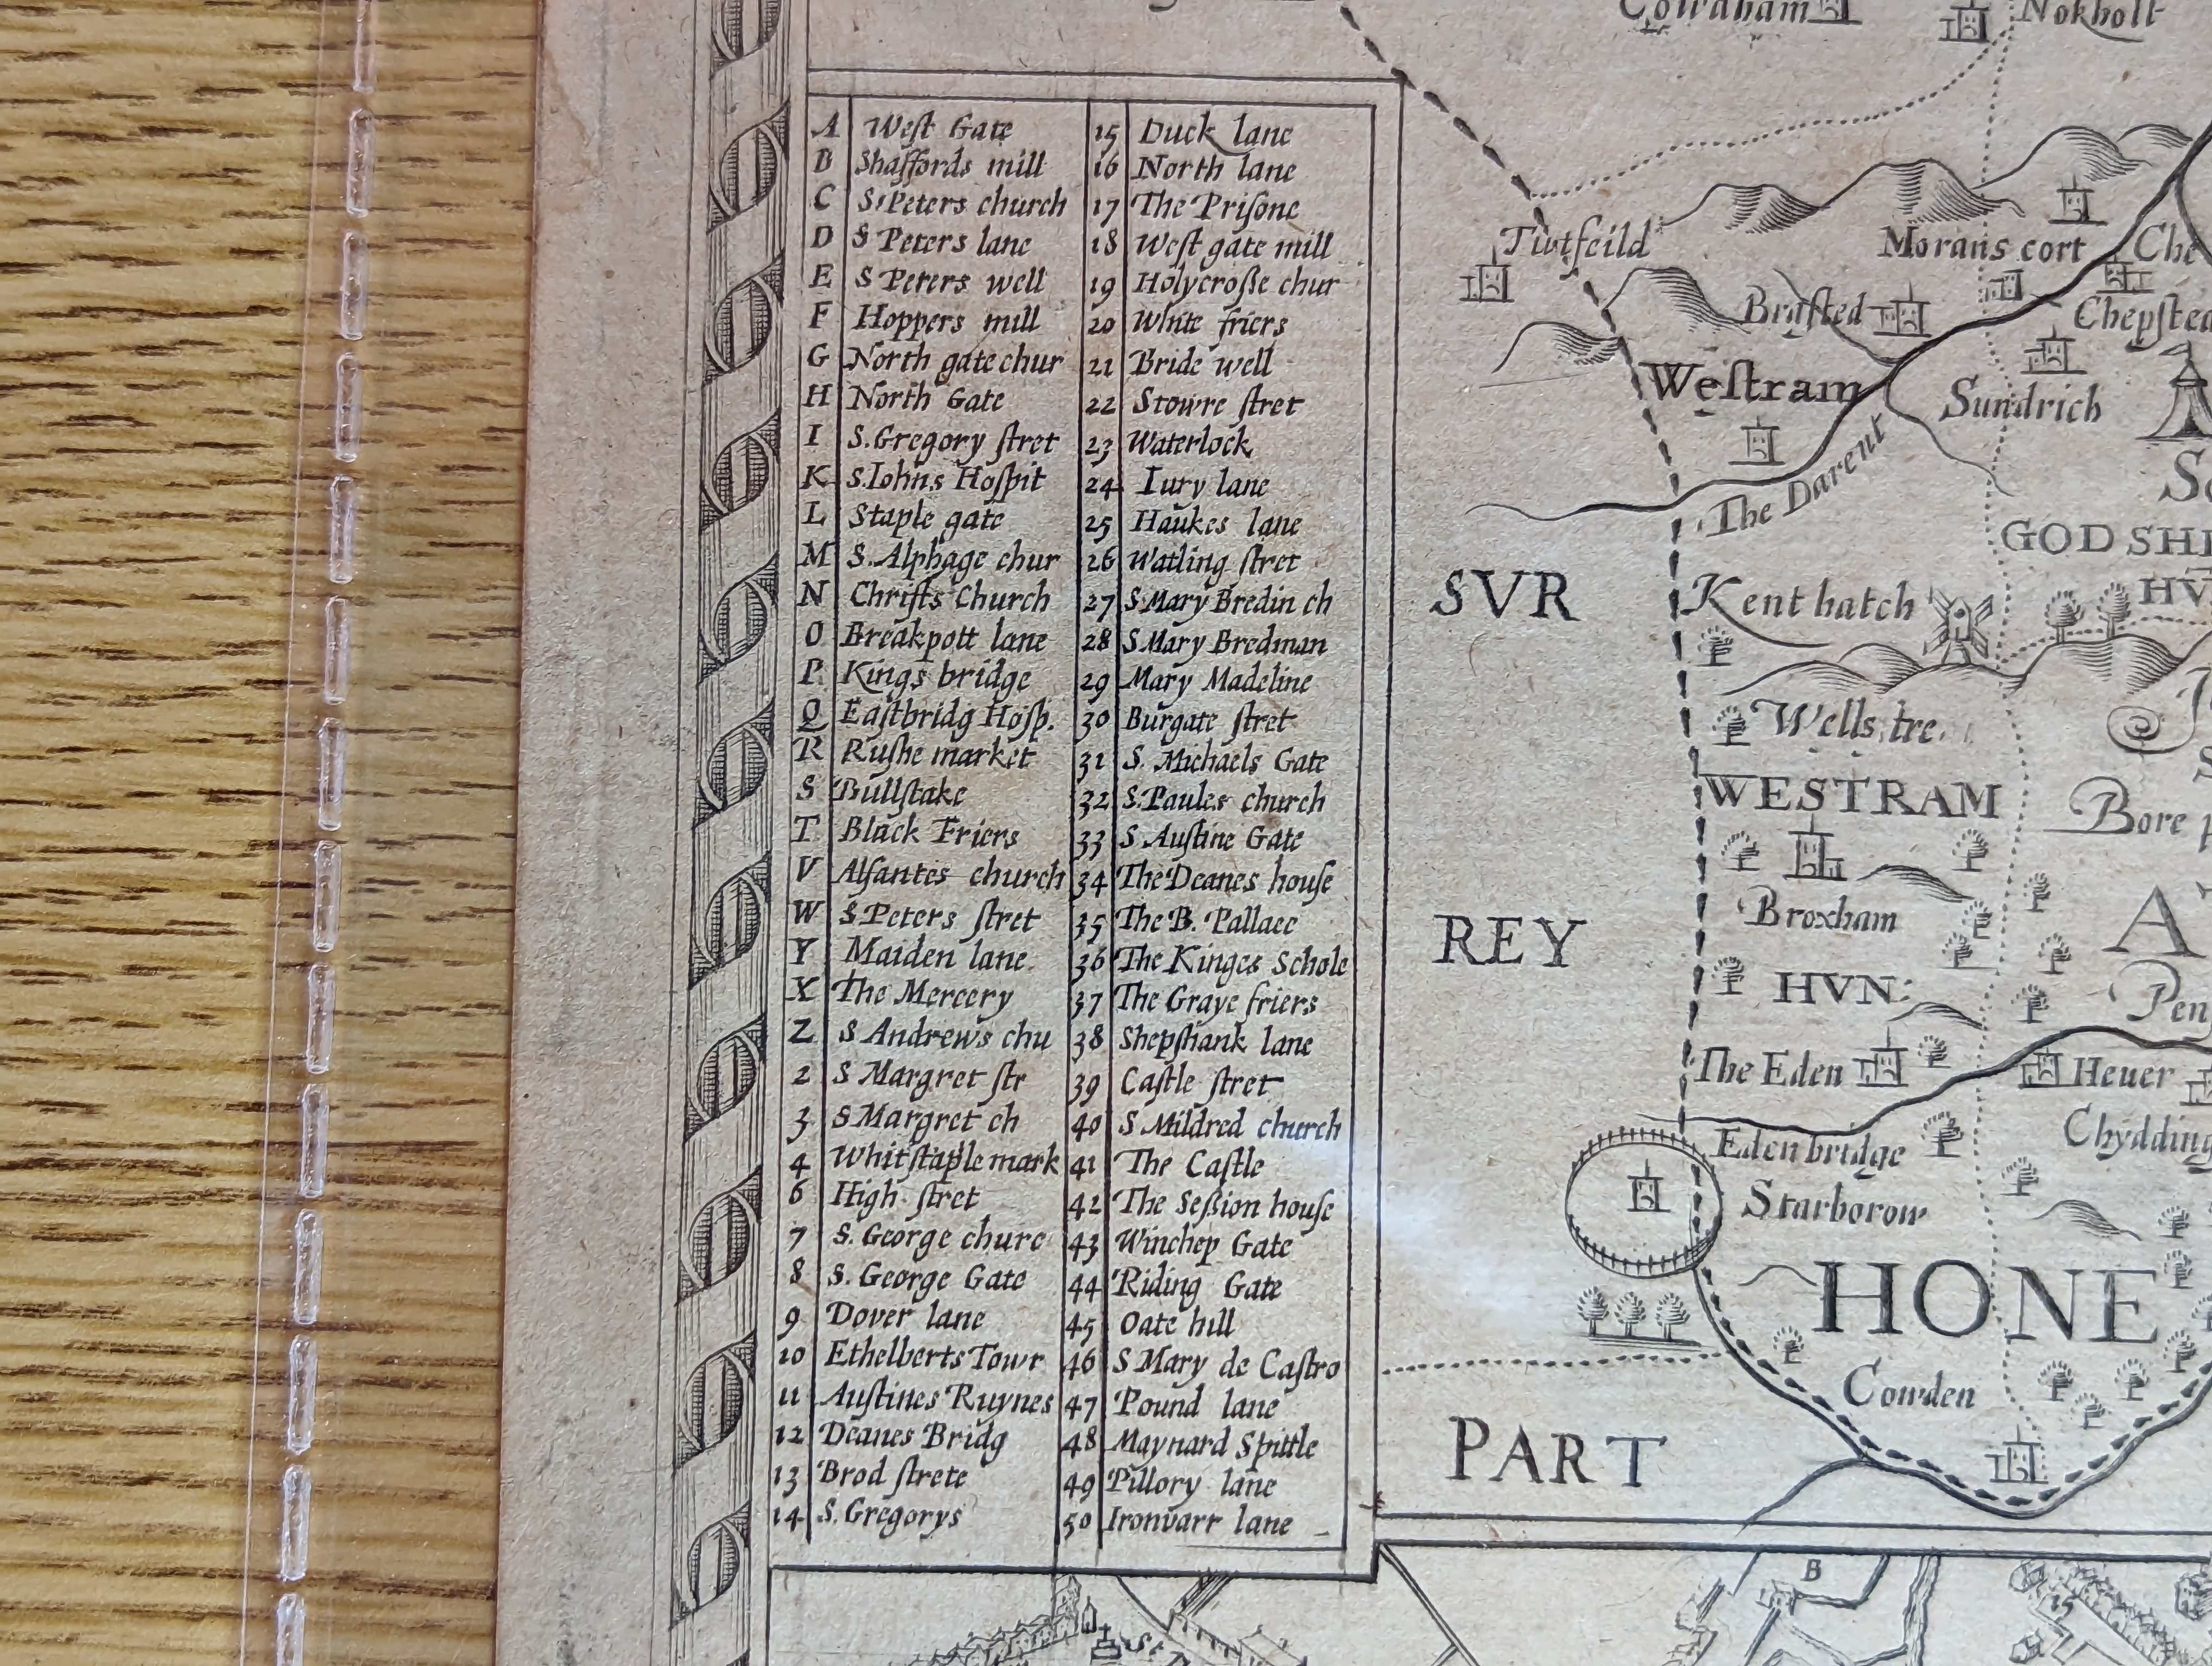 Nokholt
A Weſt Gate
B Shaffords mill
C S. Peters church
D S Peters lane
E S Peters well
F Hoppers mill
G North gate chur
H North Gate
I S. Gregory ſtret
K S. Iohns Hoſpit
L Staple gate
M S. Alphage chur
N Chriſts Church
O Breakpott lane
P Kings bridge
Q Eaſtbridg Hoſp.
R Ruſhe market
S Bullſtake
T Black Friers
V Alſantes church
W S Peters ſtret
Y Maiden lane
X The Mercery
Z S Andrews chu
2 S Margret ſtr
3 S Margret ch
4 Whitſtaple mark
6 High ſtret
7 S. George churc
8 S. George Gate
9 Dover lane
10 Ethelberts Towr
11 Auſtines Ruynes
12 Deanes Bridg
13 Brod ſtrete
14 S. Gregorys
15 Duck lane
16 North lane
17 The Priſone
18 Weſt gate mill
19 Holycroſſe chur
20 White friers
21 Bride well
22 Stowre ſtret
23 Waterlock
24 Iury lane
25 Haukes lane
26 Watling ſtret
27 S Mary Bredin ch
28 S Mary Bredman
29 Mary Madeline
30 Burgate ſtret
31 S. Michaels Gate
32 S. Paules church
33 S Auſtine Gate
34 The Deanes houſe
35 The B. Pallace
36 The Kinges Schole
37 The Graye friers
38 Shepſhank lane
39 Caſtle ſtret
40 S Mildred church
41 The Caſtle
42 The Seſsion houſe
43 Winchep Gate
44 Riding Gate
45 Oate hill
46 S Mary de Caſtro
47 Pound lane
48 Maynard Spittle
49 Pillory lane
50 Ironvarr lane
Morans cort
Che
Braſted
Chepſted
Weſtram
Sundrich
The Darent
GOD SHI
SVR
Kent hatch
HV
Wells tre
WESTRAM
Bore
Broxham
A
REY
HVN
Pen
The Eden
Heuer
Chydding
Eden bridge
Starborow
HONE
Cowden
PART
B
15